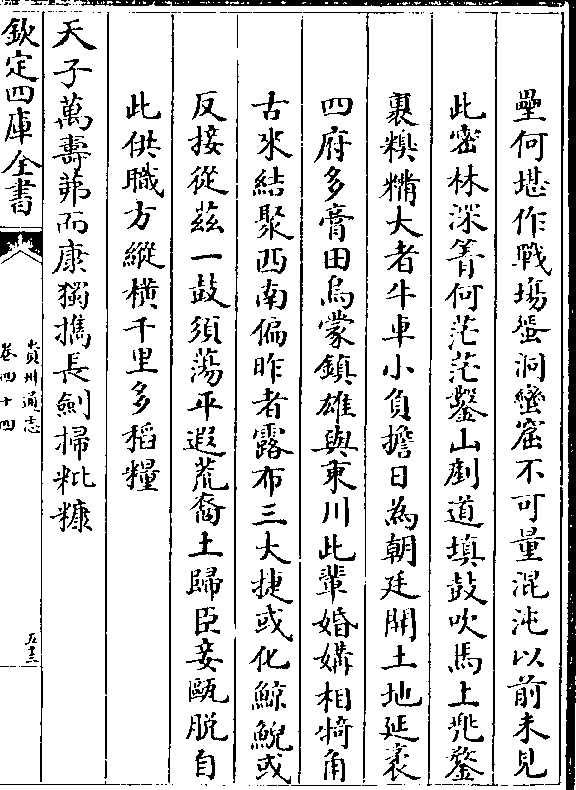 壘何堪作戰場蜑洞蠻窟不可量混沌以前未見
此密林深箐何茫茫鑿山剷道填鼓吹馬上兠鍪
裹糗糒大者牛車小負擔日為朝廷開土地延袤
四府多膏田烏蒙鎮雄與東川此輩婚媾相犄角
古來結聚西南偏昨者露布三大捷或化鯨鯢或
反接從茲一鼓須蕩平遐荒裔土歸臣妾甌脱自
此供職方縱橫千里多稻糧
天子萬壽茀而康獨擕長劍掃粃糠
欽定四庫全書
貴州通志
卷四十四
五十三